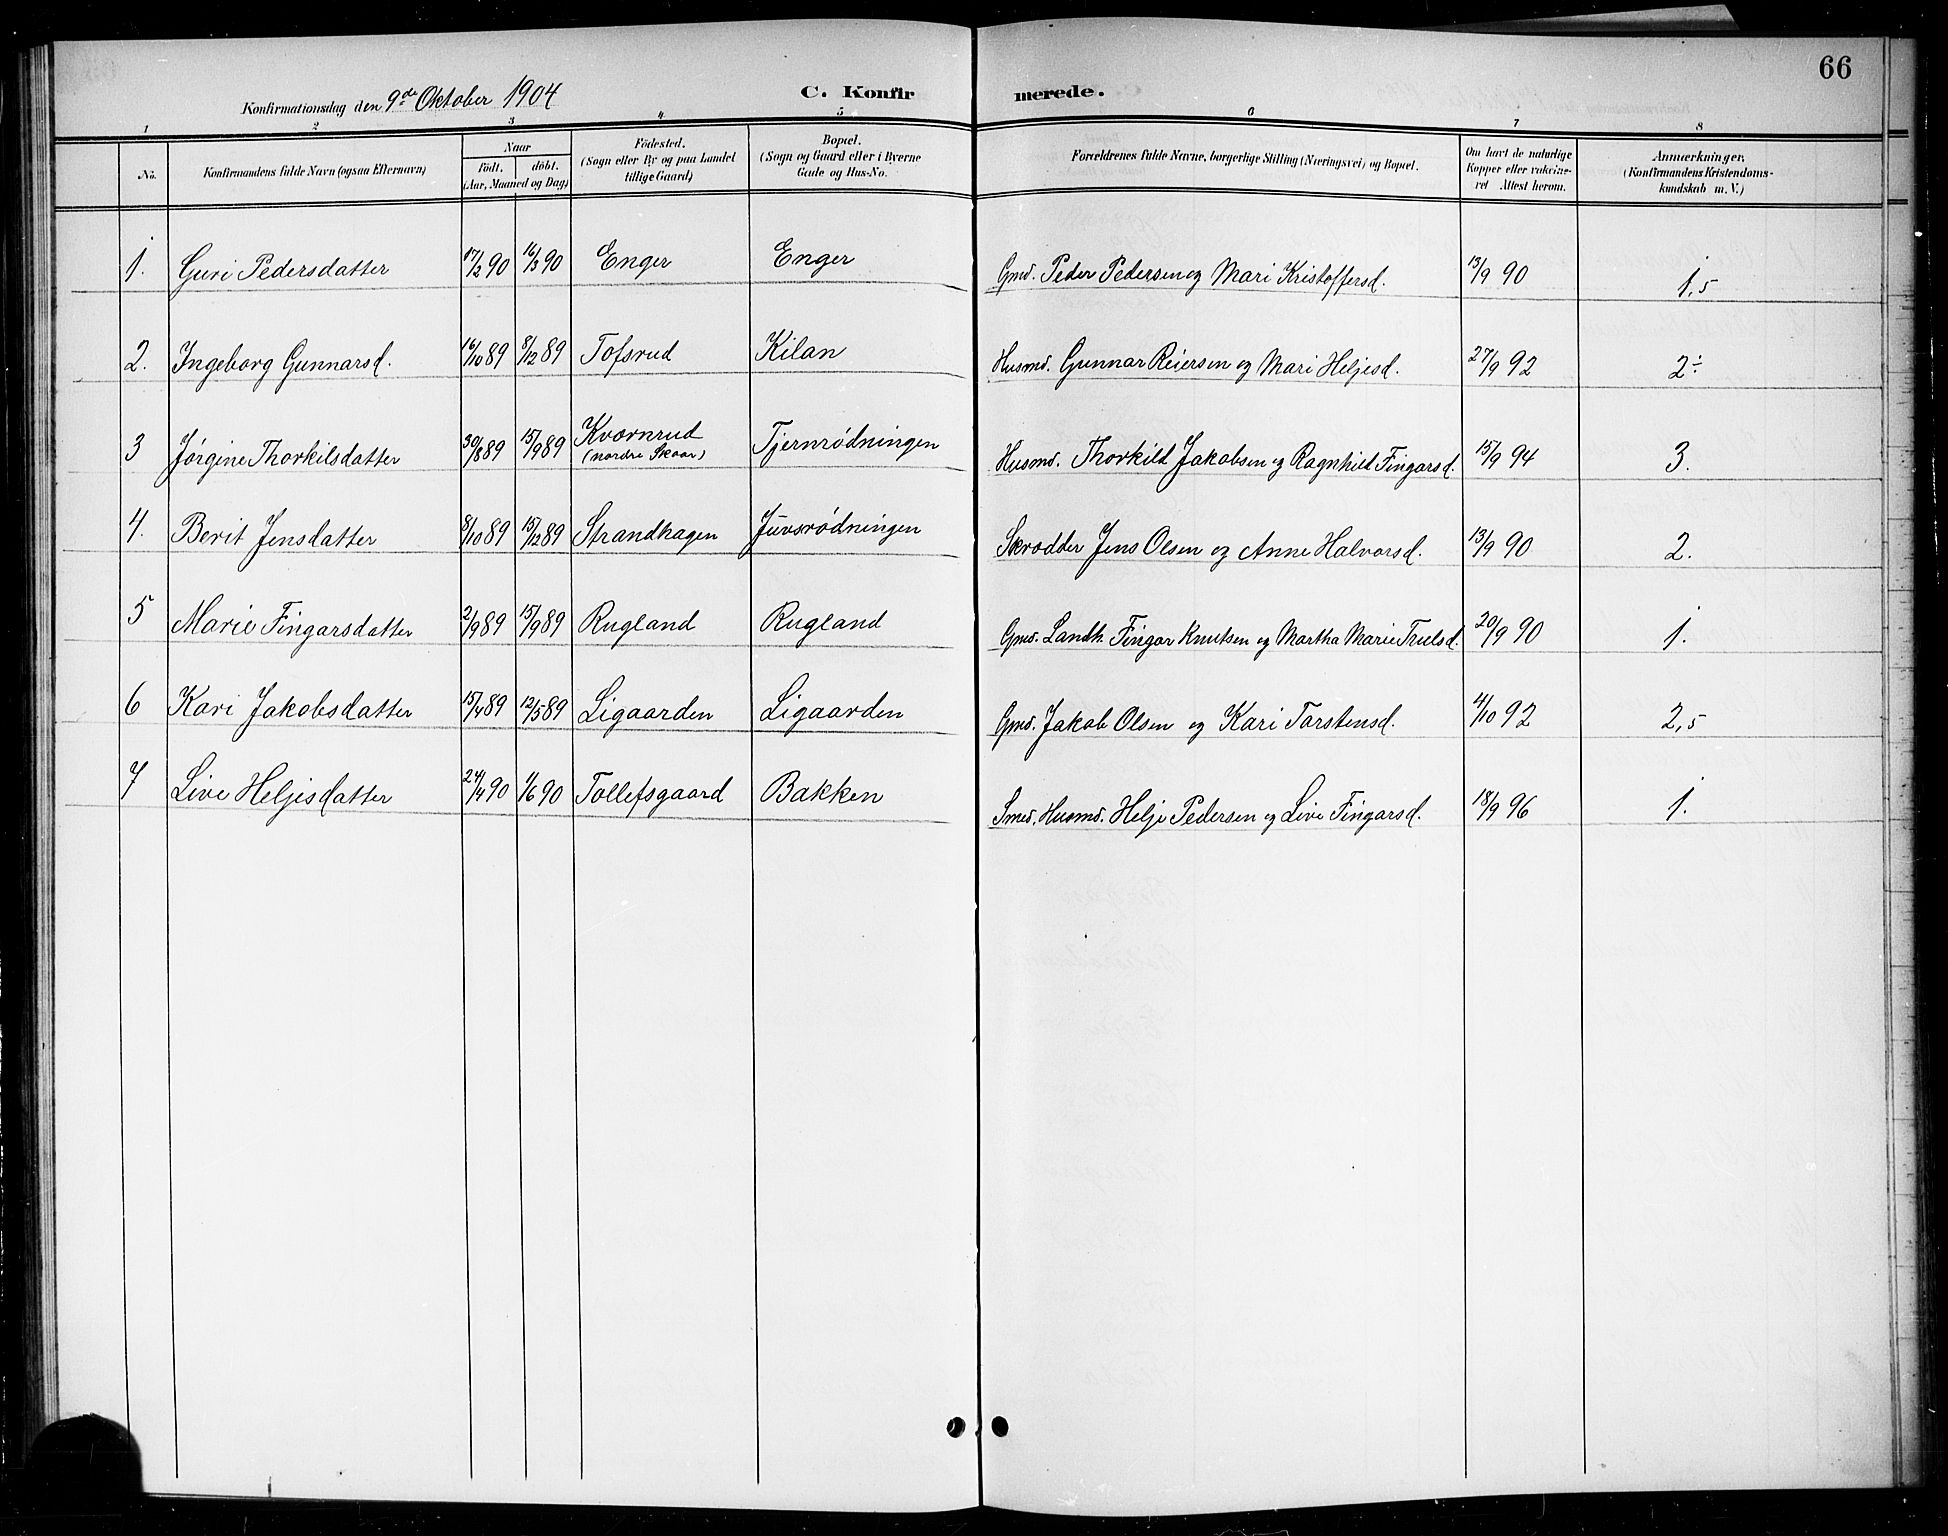 66
Konfirmationsdag den 9de Oktober 1904 C. Konfirmerede.
1 2 3 4 5 6 7 8
No. Konfirmandens fulde Navn (ogsaa Efternavn) Naar Födt. döbt. (Aar, Maaned og Dag) Födested. (Sogn eller By og paa Landet tillige Gaard) Bopæl. (Sogn og Gaard eller i Byerne Gade og Hus-No. Forældrenes fulde Navne, borgerlige Stilling (Næringsvei) og Bopæl. Om havt de naturlige Kopper eller vakcineret Attest herom. Anmærkninger, (Konfirmandens Kristendomskundskab m. V.)
1. Guri Pedersdatter 17/2 90 16/3 90 Enger Enger Gmd. Peder Pedersen og Mari Kristoffersd. 13/9 90 1,5
2. Ingeborg Gunnarsd. 16/10 89 8/12 89 Tofsrud Kilan Husmd. Gunnar Reiersen og Mari Heljesd. 27/9 92 2÷
3 Jørgine Thorkilsdatter 30/8 89 15/9 89 Kværnrud (nordre Skaar) Tjernrødningen Husmd. Thorkild Jakobsen og Ragnhild Fingarsd. 15/9 94 3.
4. Berit Jensdatter 8/10 89 15/12 89 Strandhagen Juvsrødningen Skrædder Jens Olsen og Anne Halvorsd. 13/9 90 2.
5 Marie Fingarsdatter 2/9 89 15/9 89 Rugland Rugland Gmd. Landh. Fingar Knutsen og Martha Marie Truelsd. 20/9 90 1.
6 Kari Jakobsdatter 15/4 89 12/5 89 Ligaarden Ligaarden Gmd. Jakob Olsen og Kari Torstensd. 4/10 92 2,5
7 Live Heljesdatter 24/4 90 1/6 90 Tollefsgaard Bakken Smed. Husmd. Helje Pedersen og Live Fingarsd. 18/9 96 1.